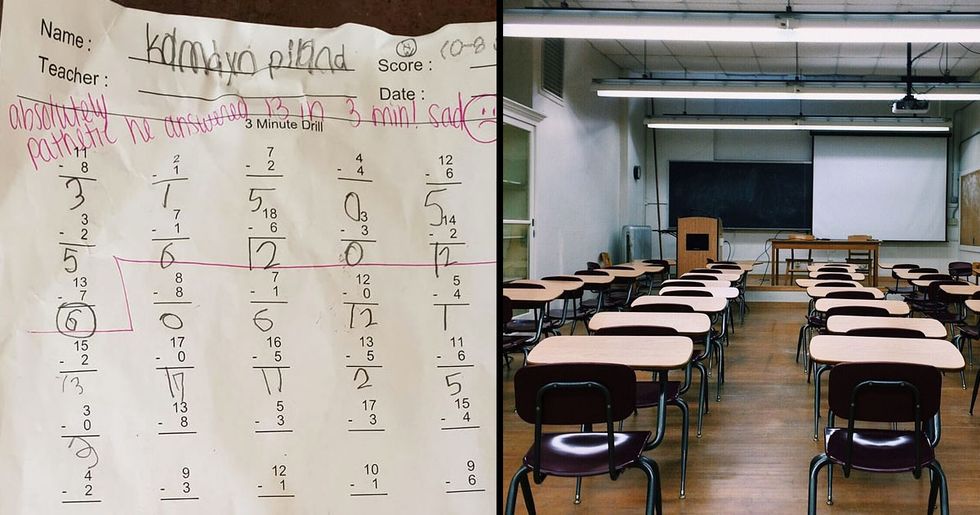 Name: Kamdyn piland Score:
Teacher: Date:
absolutely
pathetic he answered 13 in 3 min! sad
3 Minute Drill
11 2 7 4 12
- 8 - 1 - 2 - 4 - 6
3 1 5 0 5
3 7 18 3 14
- 2 - 1 - 6 - 3 - 2
5 6 12 0 12
13 8 7 12 5
- 7 - 8 - 1 - 0 - 4
6 0 6 12 1
15 17 16 13 11
- 2 - 0 - 5 - 5 - 6
13 17 11 2 5
3 13 5 17 15
- 0 - 8 - 3 - 3 - 4
3
4 9 12 10 9
- 2 - 3 - 1 - 1 - 6